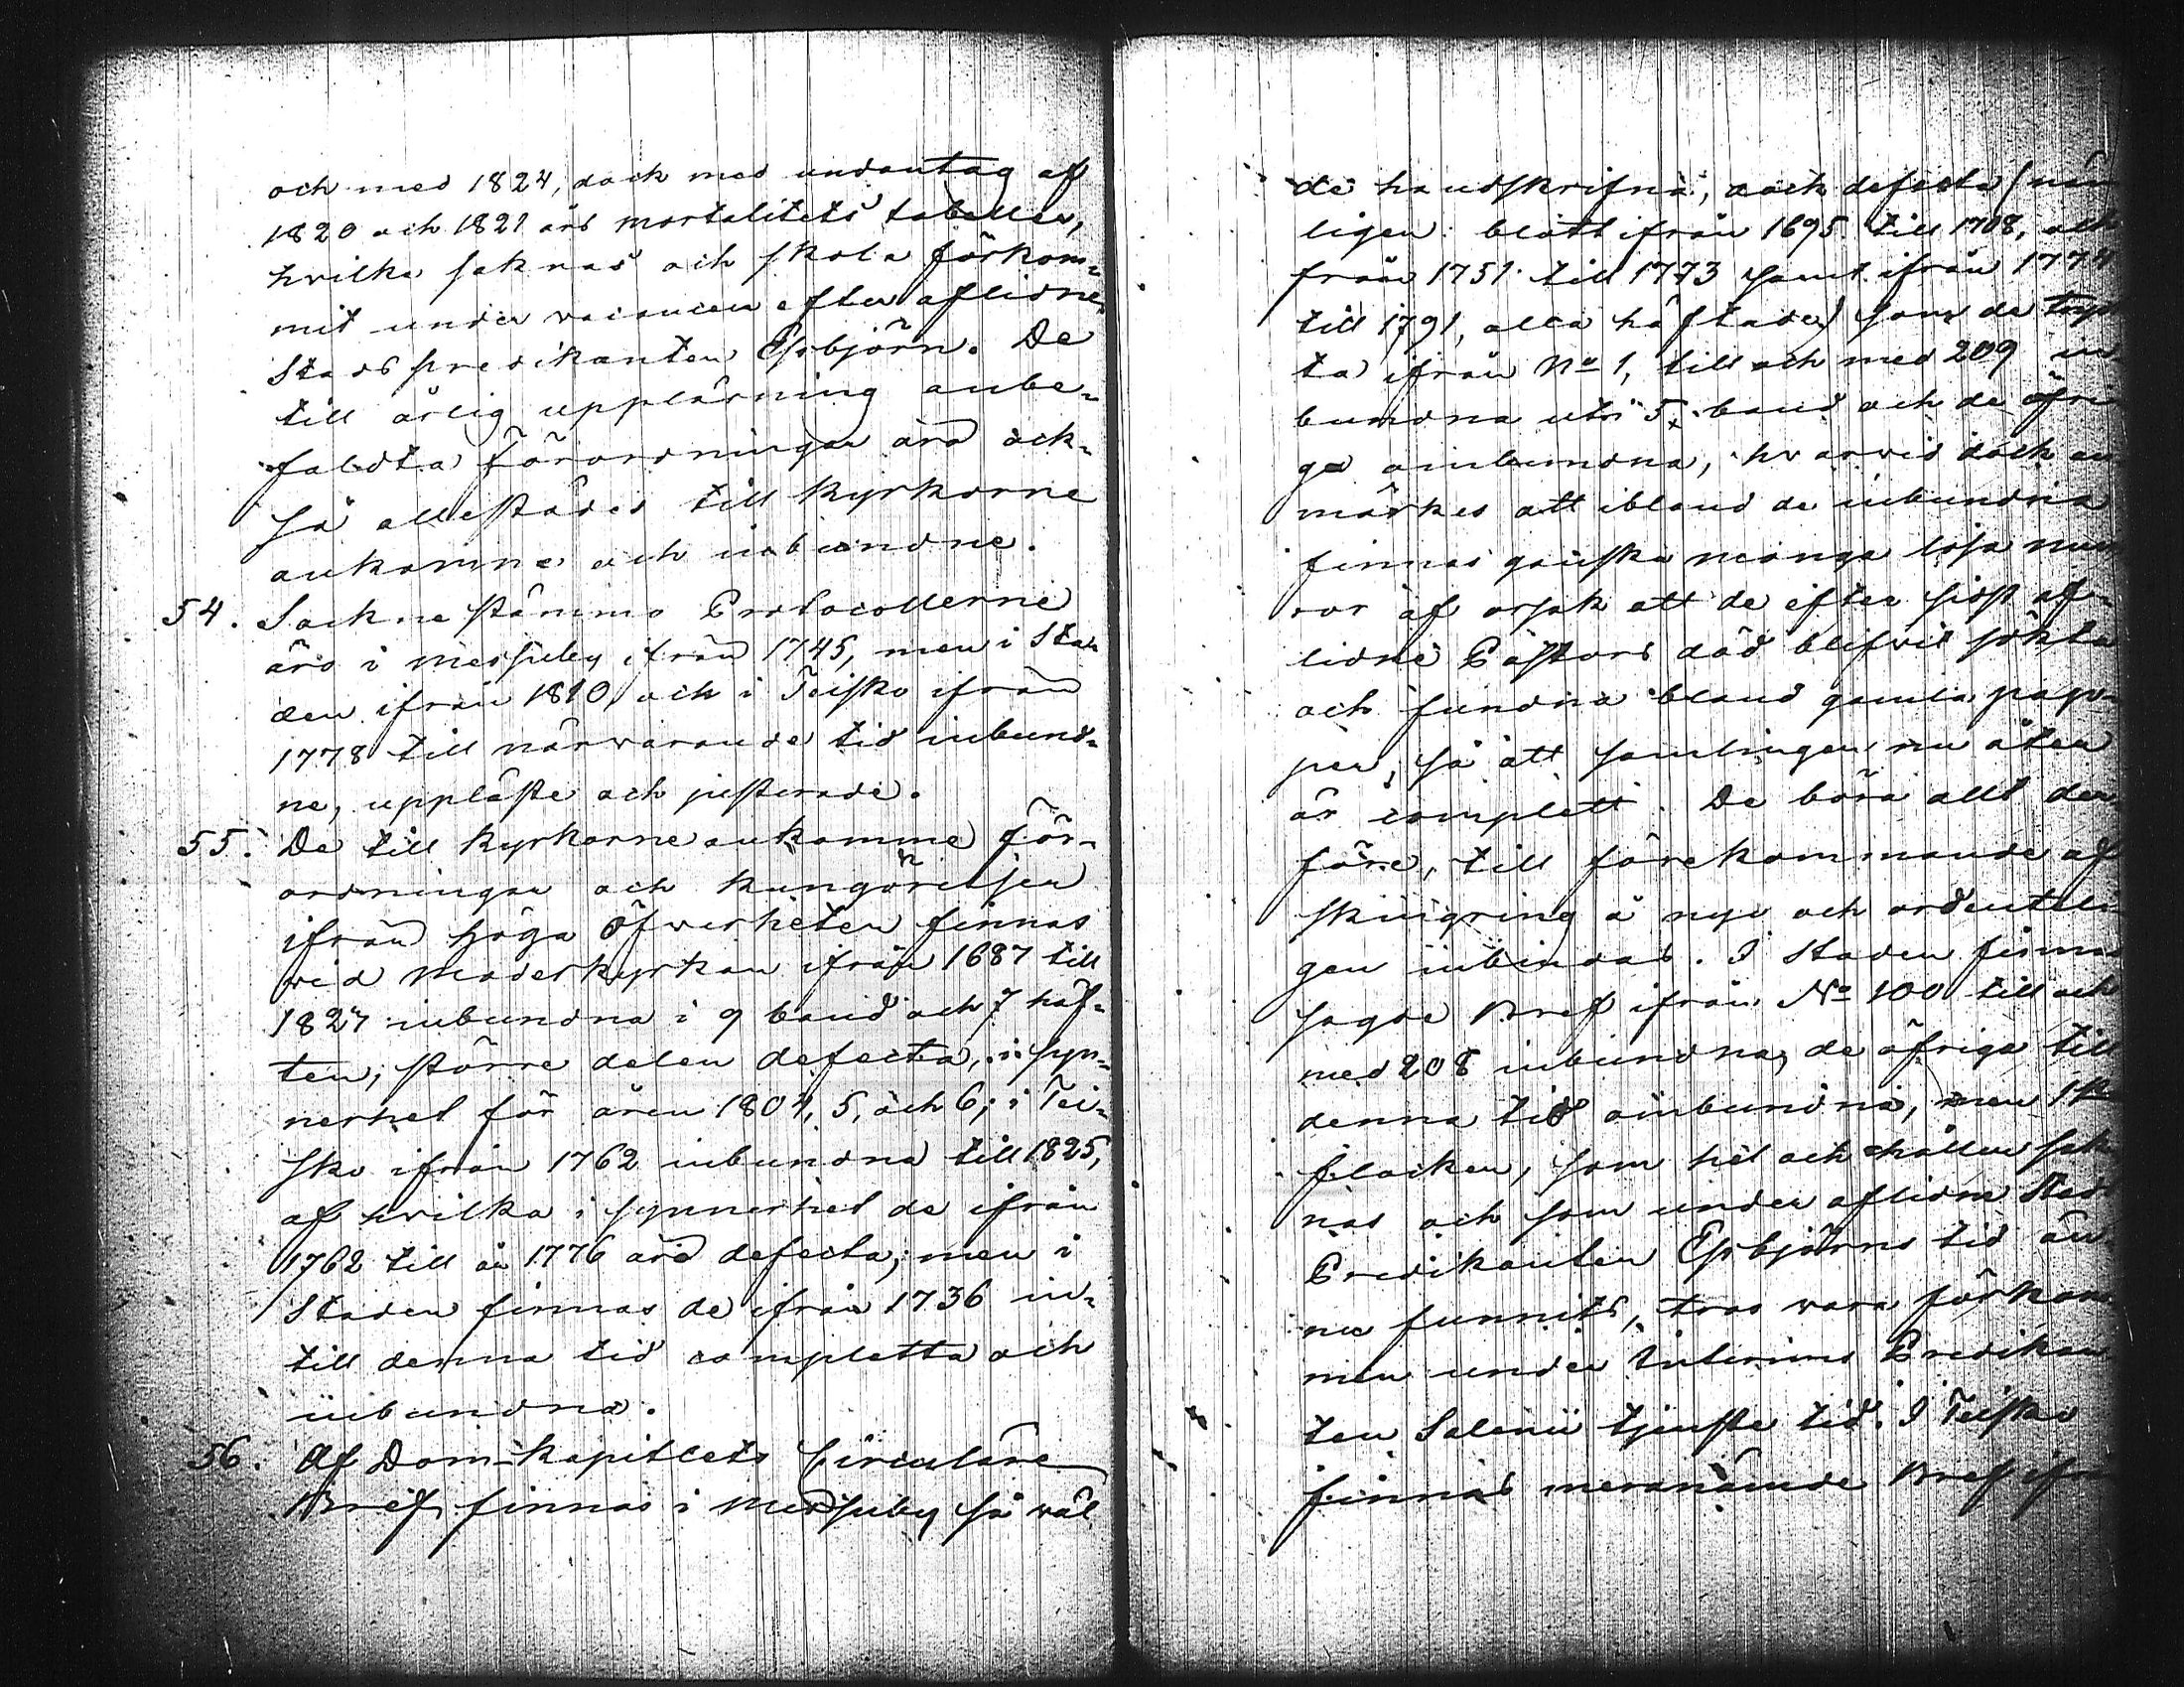 och med 1824, dock med undantag af
1820 och 1821 års mortalitets tabeller,
hvilka saknas och skola förkom-
mit under vacancen efter aflidne
Stads predikanten Esbjörn. De
till årlig uppläsning anbe-
faldta Förordningar äro ock-
så allestädes till kyrkorne
ankomne och inbundne.
54. Sockne stämmo Protocollerne
äro i Messuby ifrån 1745, men i Sta-
den ifrån 1810 och i Teisko ifrån
1778 till närvarande tid inbund-
ne, uppläste och justerade.
55. De till kyrkorne ankomme För-
ordningar och kungörelser
ifrån höga Öfverheten finnas
vid Moderkyrkan ifrån 1687 till
1827 inbundna i 9 band och 7 häf-
ten, större delen defecta, i syn-
nerhet för åren 1804, 5, och 6; i Tei-
sko ifrån 1762 inbundna till 1825,
af hvilka i synnerhet de ifrån
1762 till år 1776 äro defecta; men i
Staden finnas de ifrån 1736 in-
till denna tid completta och
inbundna.
56. Af Dom-kapitlets Circuläre
Bref finnas i Messuby så väl
de handskrifna, dock defecta (näm
ligen blott ifrån 1695 till 1708, och
från 1751 till 1773 samt ifrån 1774
till 1791, alla häftade) som de tryck
ta ifrån No 1, till och med 209 in-
bundna uti 5 band och de öfri
ga oinbundna, hvarvid dock an
märkes att ibland de inbundna
finnas ganska många lösa num
ror af orsak att de efter sidst af-
lidne Pastors död blifvit sökta
och fundna bland gamla pap-
per, så att samlingen nu åter
är complett. De böra allt der
före, till förekommande af
skingring å nyo och ordenteli-
gen inbindas. I Staden finnas
sagde Bref ifrån No 100 till och
med 208 inbundna, de öfriga till
denna tid oinbundna, men
flocken, som hel och hållen sak
nas och som under aflidne Stads
Predikanten Esbjörns tid än
nu funnits, tros vara förkom
men under Interims Predikan
ten Salenii tjenste tid. I Teisko
finnas meranämnde Bref ifr